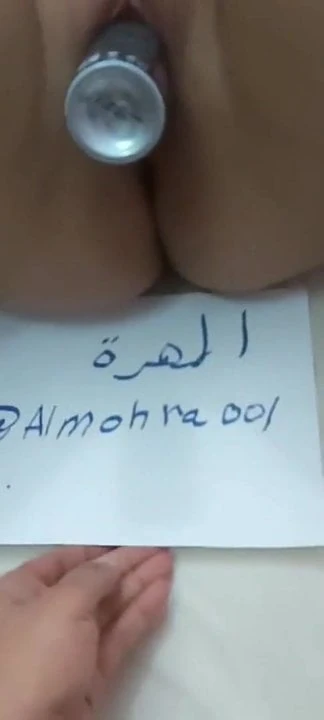 المهرة
@Almohra001